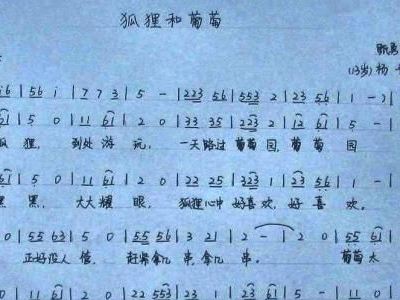 狐狸和葡萄
(13岁) 杨
i6 | 56 i | 7 7 3 | 5 - | 223 56 | 553 2 | 223 56 | 1 - )
61 | 5 0 | 11 61 | 2 0 | 33 35 | 223 2 | 12 61 | 5 -
狐狸, 到处游玩, 一天路过葡萄园, 葡萄园
61 | 5 0 | 11 61 | 2 0 | 22 25 | 323 1 | 223 56 | 1 -
黑, 大大耀眼, 狐狸心中好喜欢, 好喜欢。
0 | 55 63 | 5 0 | 55 65 | 3 21 | 2 - | 2 0 | 55 61
正好没人值, 赶紧拿几串, 拿几串。 葡萄太
0 | 11 61 | 2 0 | 22 553 | 23 1 | 23 61 | 5 - |